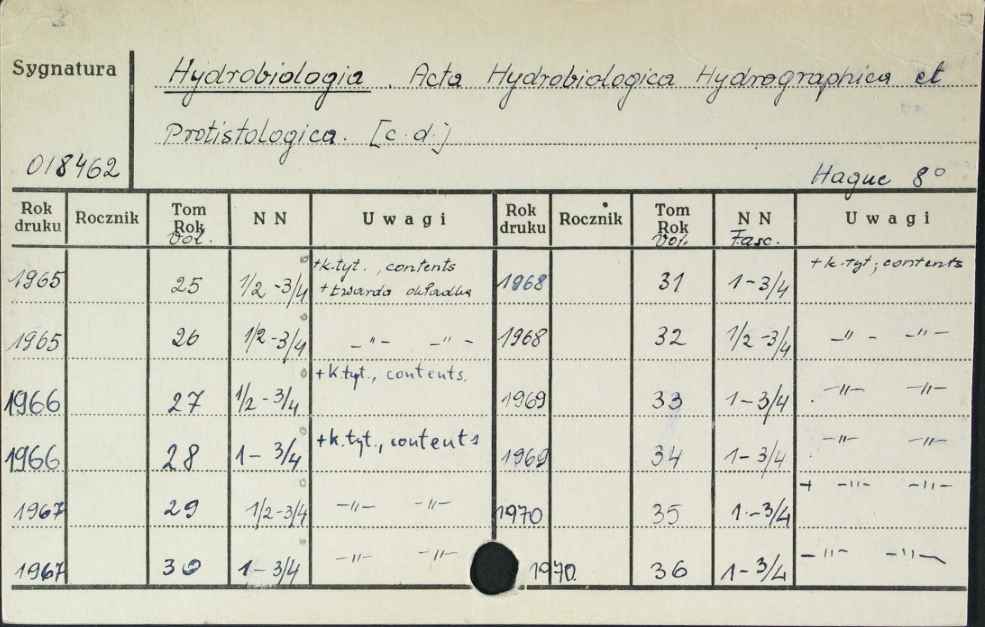 Sygnatura
Hydrobiologia. Acta Hydrobiologica Hydrographica et
Protistologica. [c.d.]
018462
Hague 8°
Rok druku Rocznik Tom Rok Vol. NN Uwagi Rok druku Rocznik Tom Rok Vol. NN Fasc. Uwagi
1965 25 1/2-3/4 +k.tyt., contents +twarda okładka 1968 31 1-3/4 +k.tyt; contents
1965 26 1/2-3/4 -"- -"- 1968 32 1/2-3/4 -"- -"-
1966 27 1/2-3/4 +k.tyt., contents. 1969 33 1-3/4 -"- -"-
1966 28 1-3/4 +k.tyt., contents 1969 34 1-3/4 -"- -"-
1967 29 1/2-3/4 -"- -"- 1970 35 1-3/4 + -"- -"-
1967 30 1-3/4 -"- -"- 1970. 36 1-3/4 -"- -"-